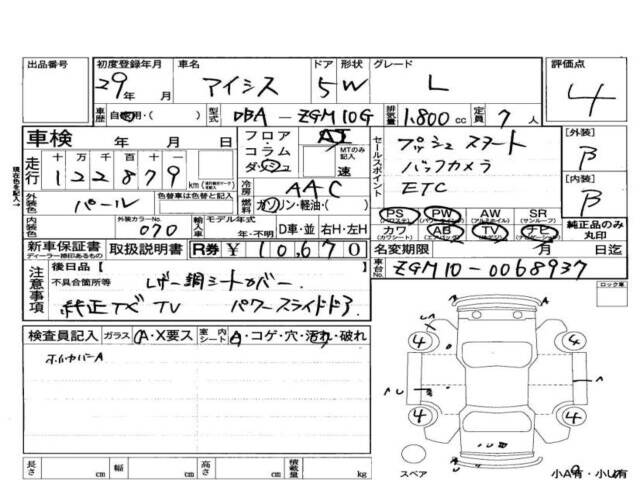 出品番号
初度登録年月
29年 月
車名
アイシス
ドア
5
形状
W
グレード
L
評価点
4
車歴
自家用・( )
型式
DBA-ZGM10G
排気量
1.800cc
定員
7人
車検 年 月 日
フロア・コラム
ダッシュ
AT
MTのみ記入
速
セールスポイント
プッシュスタート
バックカメラ
ETC
[外装]
B
[内装]
B
現在色を記入→
走行
十万千百十一
122879
km
冷房
AAC
外装色
パール
色替車は色替と記入
燃料
ガソリン・軽油・( )
PS PW AW SR
(パワステ)(パワーウィンドウ)(アルミホイル)(サンルーフ)
カワ AB TV ナビ
(カワシート)(エアバッグ)
純正品のみ丸印
内装色
外装カラーNo.
070
輸入車
モデル年式
年・不明
D車・並
右H・左H
新車保証書
ディーラー捺印あるもの
取扱説明書
R券
¥10,670
名変期限 月 日迄
車台No.
ZGM10-0068937
注意事項
後日品[ ]
不具合箇所等
レザー調シートカバー
純正ナビ TV パワースライドドア
ロック車
検査員記入
ガラス
A・X要ス
室内シート
A・コゲ・穴・汚れ・破れ
ホイルカバーA
4
4
4
4
A
U
A
AU
A
スペア
長さ cm
幅 cm
高さ cm
積載量 kg
小A有・小U有